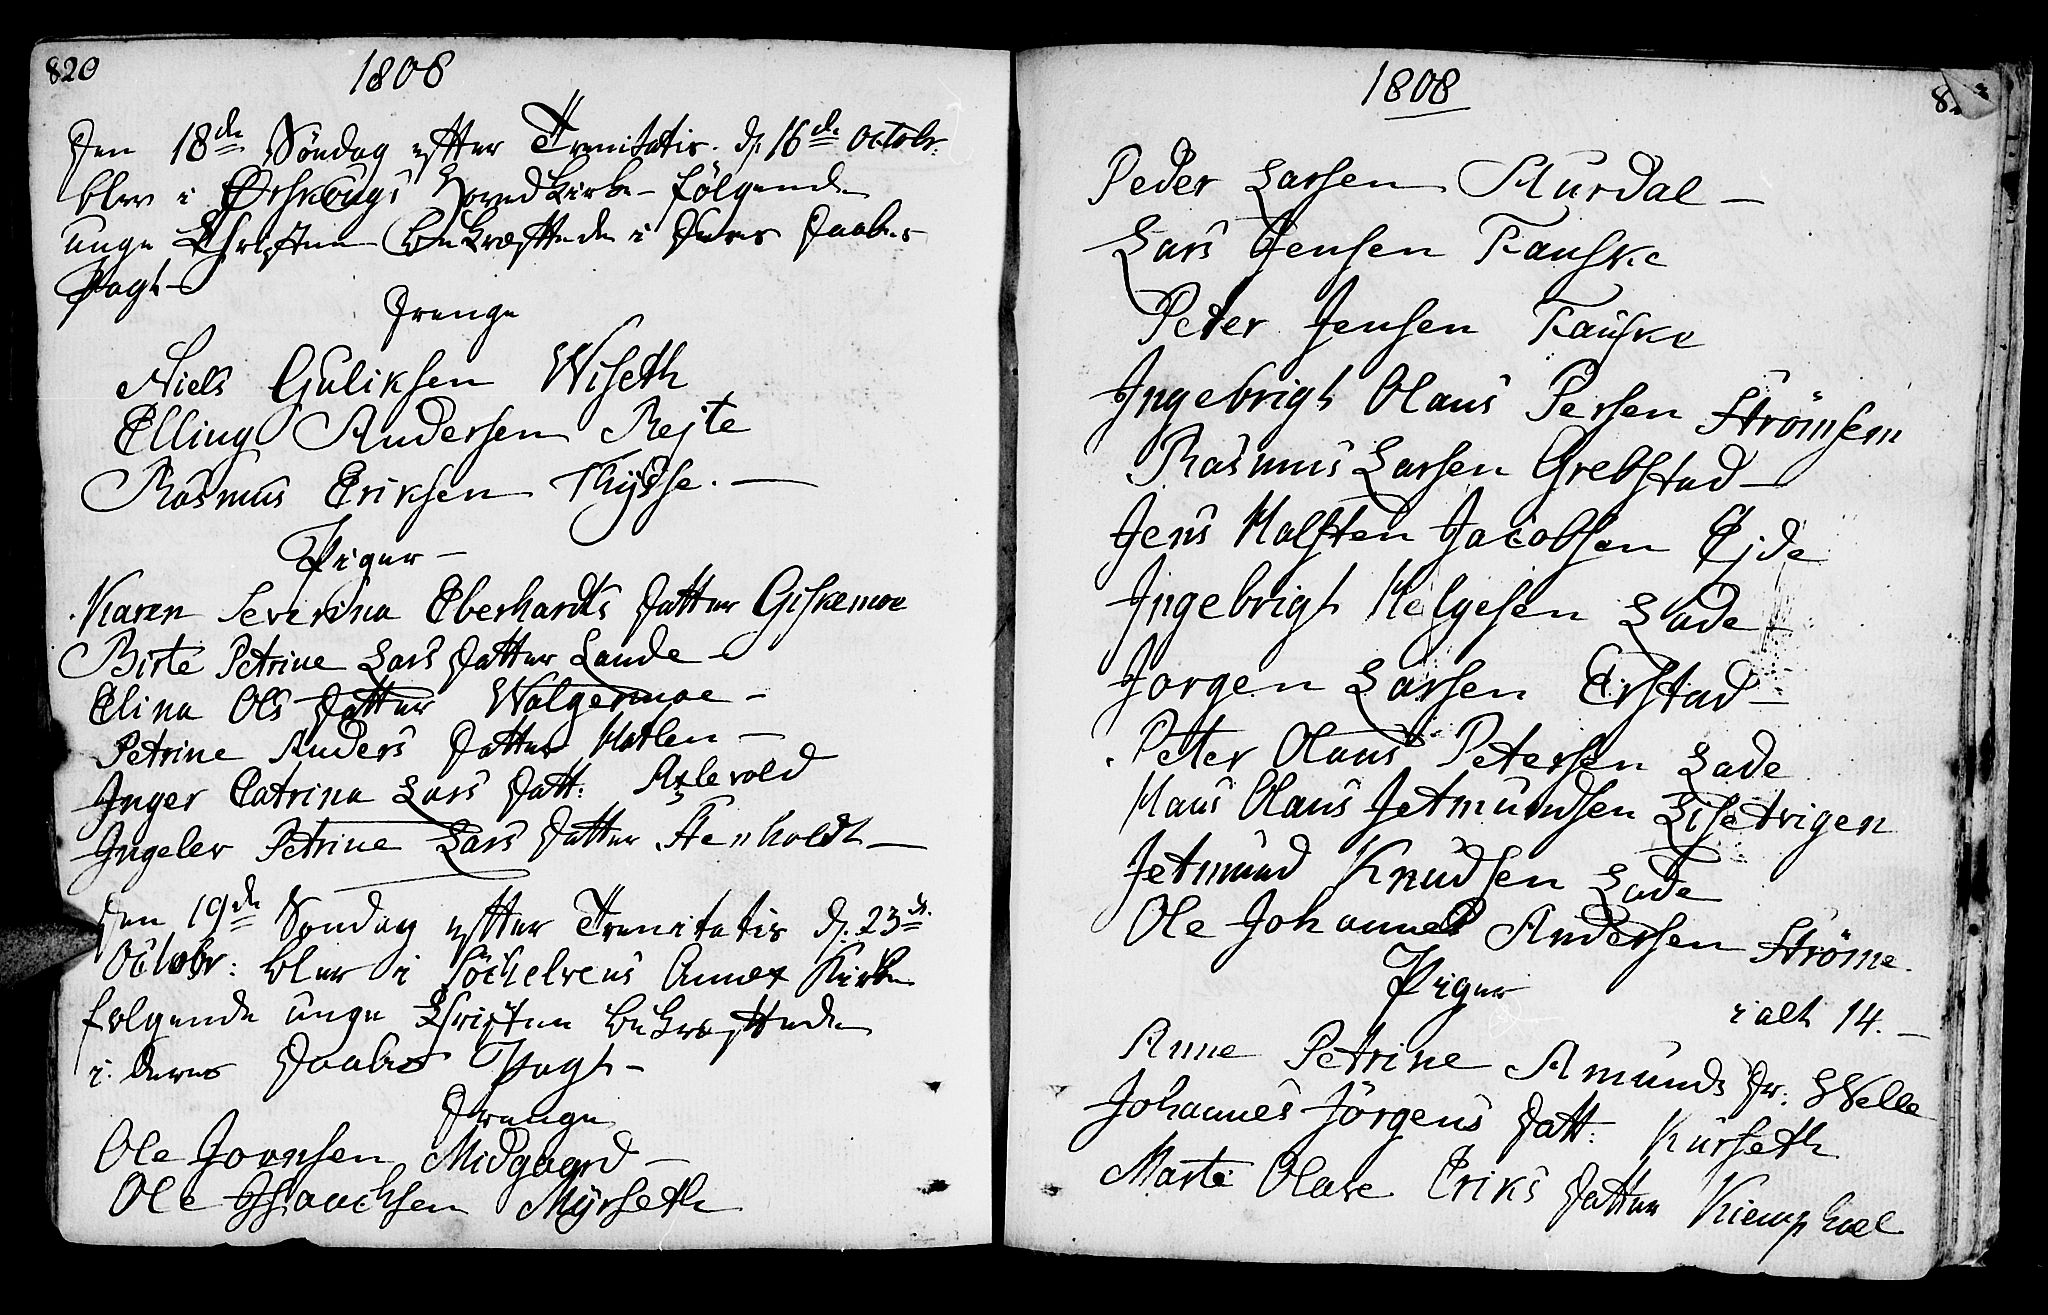 820
1808
Den 18de Söndag efter Trenitatis. d. 16de Octobr:
blev i Örschougs Hovedkirke følgende
unge Christne bekræftede i deres Daabes
Pagt -
Drenge
Niels Guliksen Wiseth
Elling Andersen Rejte
Rasmus Eriksen Thysse. -
Piger -
Karen Severina Eberhardts Datter Giskemoe
Birte Petrine Lars Datter Lande -
Elina Ols Datter Wolgermoe -
Petrine Anders Datter Hatlen -
Inger Catrina Lars Datt: Axlevold
Ingeler Petrine Lars Datter Stenholdt -
Den 19de Söndag efter Trenitatis d. 23de
Octobr: blev i Söchelvens Annex Kirke
følgende unge Christne bekræftede
i deres Daabes Pagt -
Drenge
Ole Joensen Midgaard -
Ole Isaachsen Myrseth
1808
Peder Larsen Murdal -
Lars Jensen Fauske
Peter Jensen Fauske
Ingebrigt Olaus Persen Strömsem
Rasmus Larsen Grebstad -
Jens Halsten Jacobsen Ejde
Ingebrigt Helgesen Lade -
Jorgen Larsen Erstad -
Peter Olaus Petersen Lade
Hans Olaus Jetmundsen Lisetrigen
Jetmund Knudsen Lade
Ole Johannes Andersen Ströme.
Piger
i alt 14. -
Anne Petrine Amunds Dr. Welle
Johannes Jörgens Datt: Kurseth
Marte Olave Eriks Datter Kiemphoel